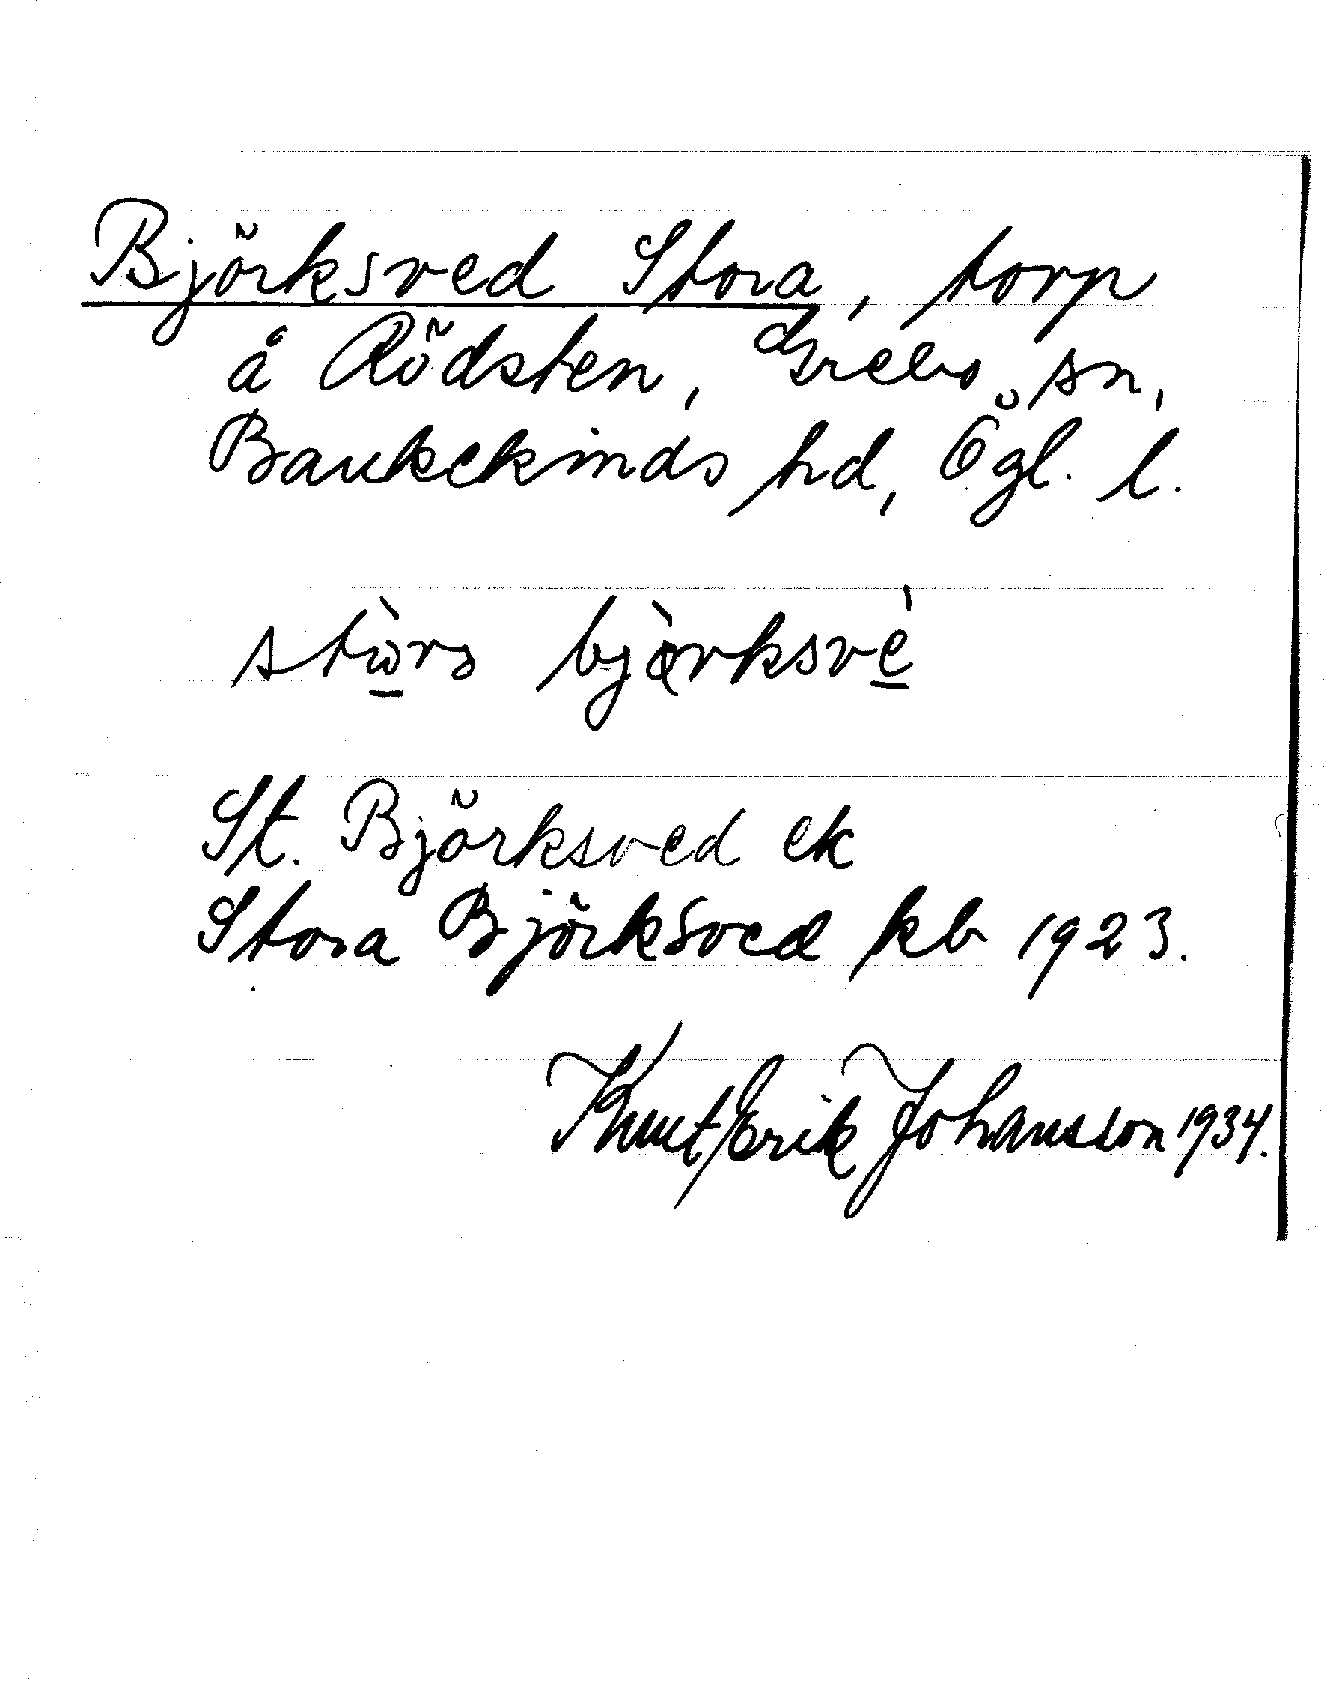 Björksved Stora, torp
å Rödsten, Grebo sn,
Bankekinds hd, Ögl. l.
stὼ̲rɜ bjö̀rksvè̲
St. Björksved ek
Stora Björksved kb 1923.
Knut Erik Johansson 1934.